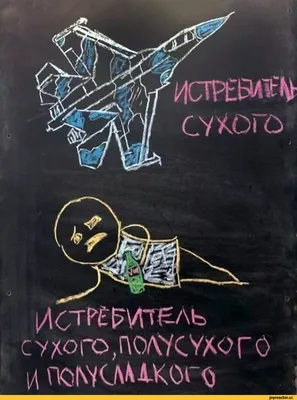 ИСТРЕБИТЕЛЬ
СУХОГО
ИСТРЕБИТЕЛЬ
СУХОГО, ПОЛУСУХОГО
И ПОЛУСЛАДКОГО
joyreactor.cc